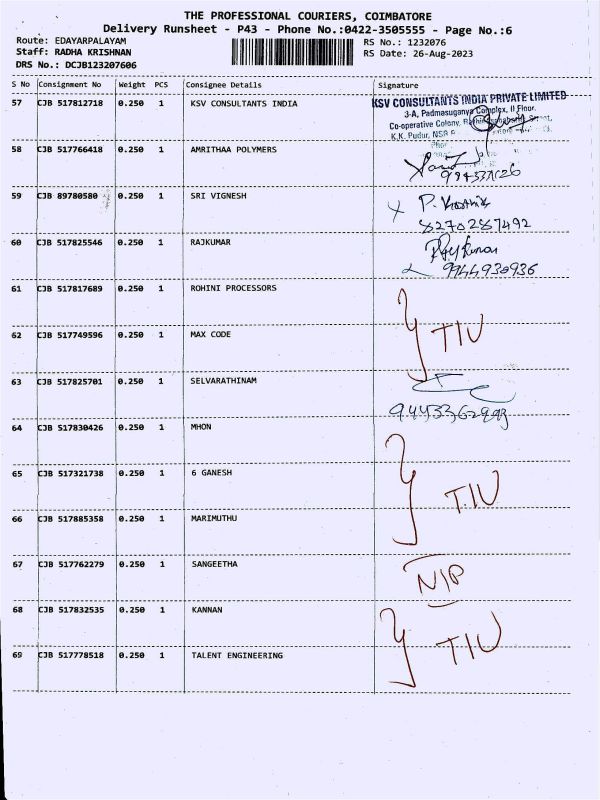 THE PROFESSIONAL COURIERS, COIMBATORE
Delivery Runsheet - P43 - Phone No.:0422-3505555 - Page No.:6
Route: EDAYARPALAYAM
RS No.: 1232076
Staff: RADHA KRISHNAN
RS Date: 26-Aug-2023
DRS No.: DCJB123207606
S No Consignment No Weight PCS Consignee Details Signature
57 CJB 517812718 0.250 1 KSV CONSULTANTS INDIA
KSV CONSULTANTS INDIA PRIVATE LIMITED
3-A, Padmasuganya Complex, II Floor,
Co-operative Colony,
K.K. Pudur,
58 CJB 517766418 0.250 1 AMRITHAA POLYMERS
59 CJB 89780580 0.250 1 SRI VIGNESH
P. Karthik
8270287492
60 CJB 517825546 0.250 1 RAJKUMAR
Rajkumar
9944930936
61 CJB 517817689 0.250 1 ROHINI PROCESSORS
TIU
62 CJB 517749596 0.250 1 MAX CODE
63 CJB 517825701 0.250 1 SELVARATHINAM
64 CJB 517830426 0.250 1 MHON
65 CJB 517321738 0.250 1 6 GANESH
TIU
66 CJB 517885358 0.250 1 MARIMUTHU
67 CJB 517762279 0.250 1 SANGEETHA
N/P
68 CJB 517832535 0.250 1 KANNAN
TIU
69 CJB 517778518 0.250 1 TALENT ENGINEERING